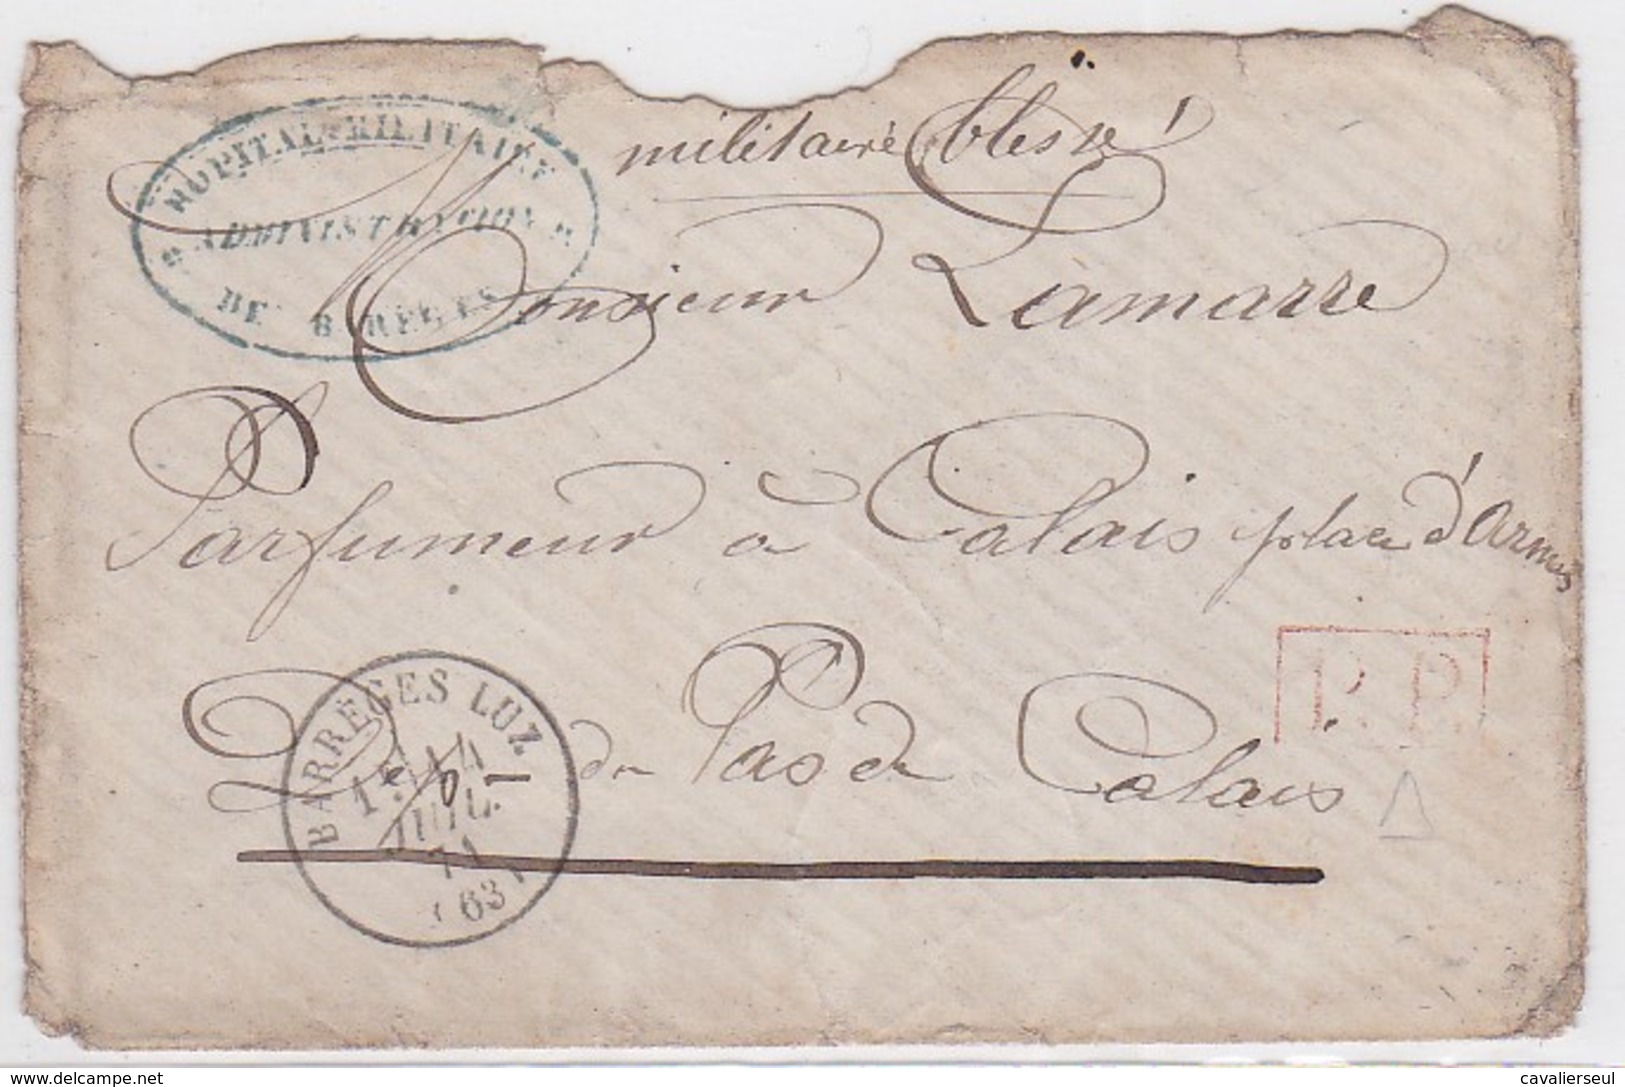 HÔPITAL MILITAIRE
ADMINISTRATION
DE BARÈGES
militaire blessé
Monsieur Lamarre
Parfumeur à Calais place d'Armes
R. P.
Dép du Pas de Calais
BARRÈGES LUZ
14
JUIL.
71
(63)
delcampe.net
cavalierseul